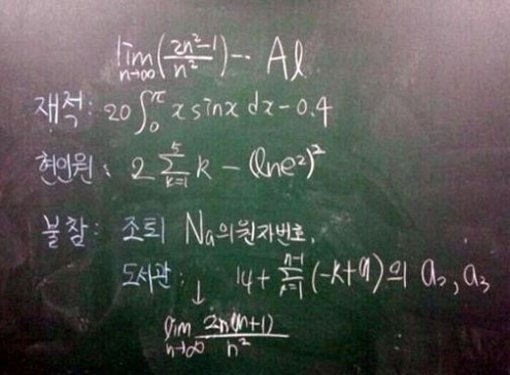 lim n→∞ (2n²-1 / n²) -- Al
재적: 20∫₀^π x sinx dx - 0.4
현인원: 2 Σ_{k=1}^{5} k - (lne²)²
불참: 조퇴 Na의원자번호,
도서관: 14 + Σ^{n-1} (-k+9)의 a₂, a₃
↓
lim n→∞ 2n(n+1) / n²